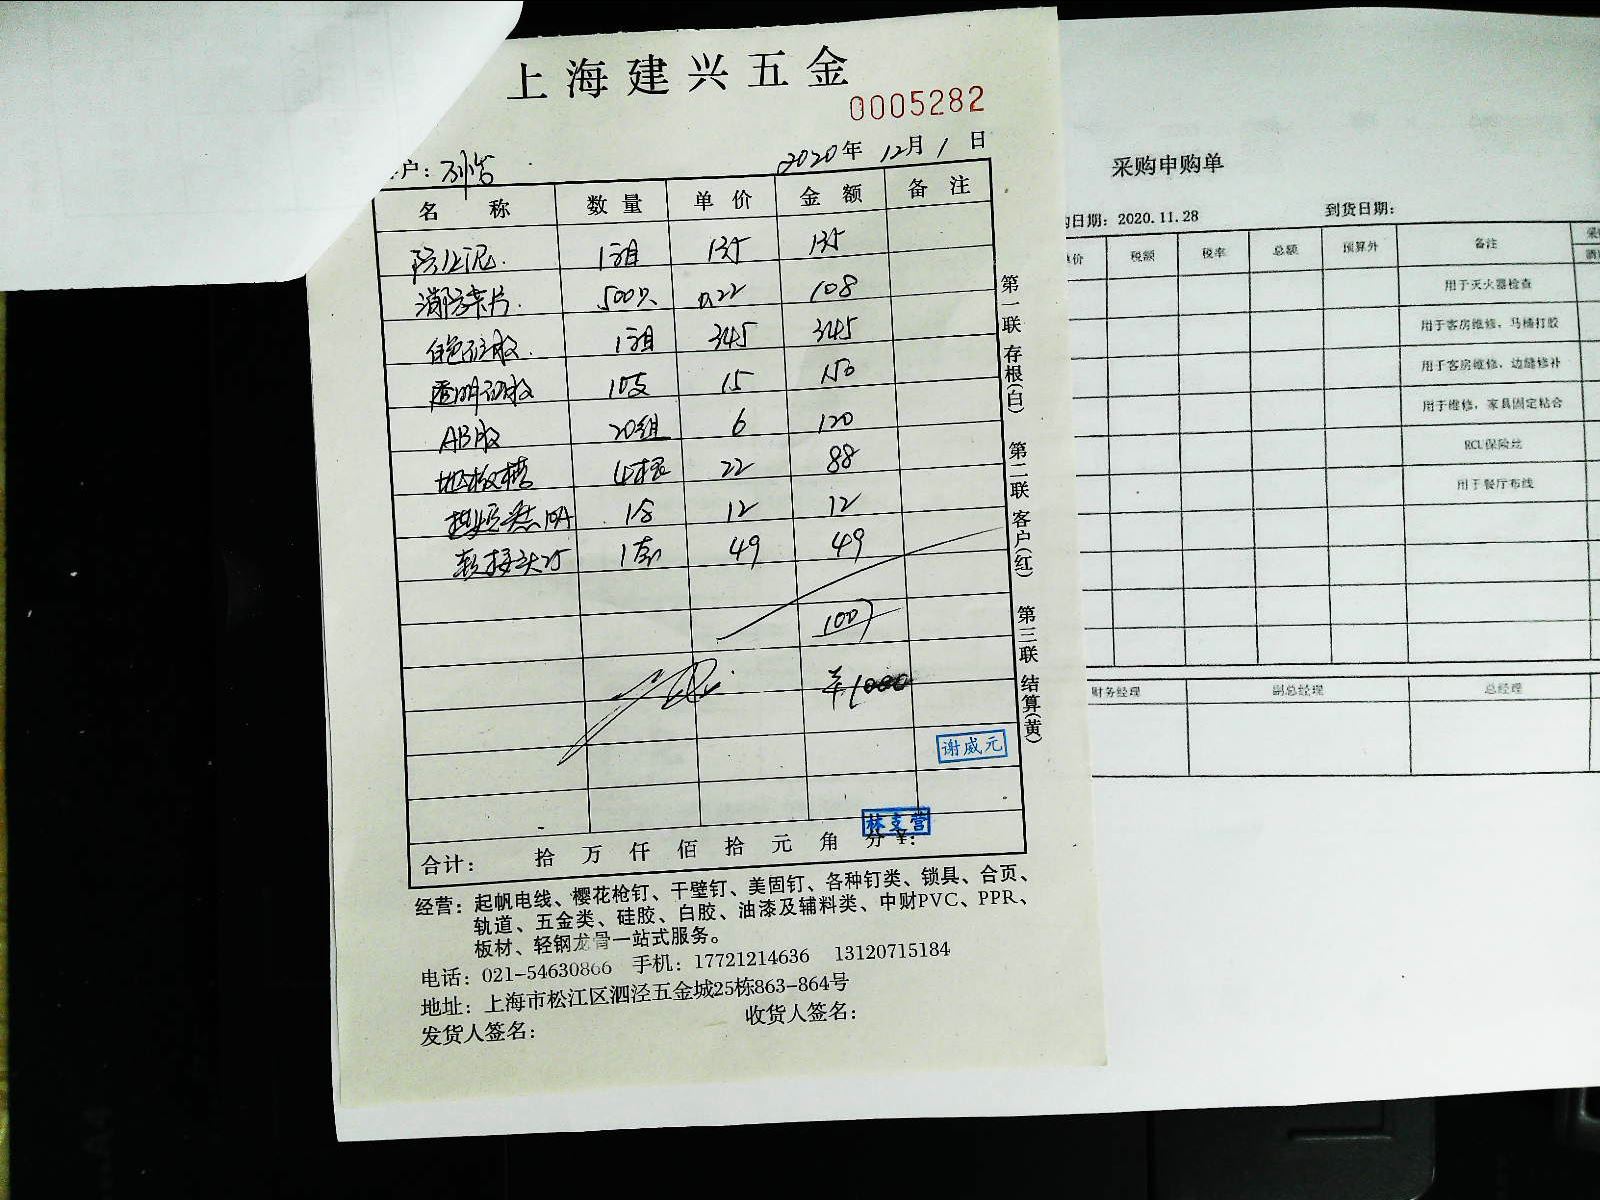 上海建兴五金
0005282
户：
2020年12月1日
名称 数量 单价 金额 备注
防火泥 1箱 135 135
消防卡片 500只 0.22 108
白色硅胶 1箱 345 345
透明硅胶 10支 15 150
AB胶 20组 6 120
地板槽 4根 22 88
10A 1合 12 12
转接头 1套 49 49
1007
¥1000
谢威元
林支营
合计： 拾 万 仟 佰 拾 元 角 分 ¥：
第一联 存根(白) 第二联 客户(红) 第三联 结算(黄)
经营：起帆电线、樱花枪钉、干壁钉、美固钉、各种钉类、锁具、合页、
轨道、五金类、硅胶、白胶、油漆及辅料类、中财PVC、PPR、
板材、轻钢龙骨一站式服务。
电话：021-54630866 手机：17721214636 13120715184
地址：上海市松江区泗泾五金城25栋863-864号
发货人签名： 收货人签名：
采购申购单
日期：2020.11.28 到货日期：
价 税额 税率 总额 预算外 备注
用于灭火器检查
用于客房维修，马桶打胶
用于客房维修，边缝修补
用于维修，家具固定粘合
RCU保险丝
用于餐厅布线
财务经理 副总经理 总经理